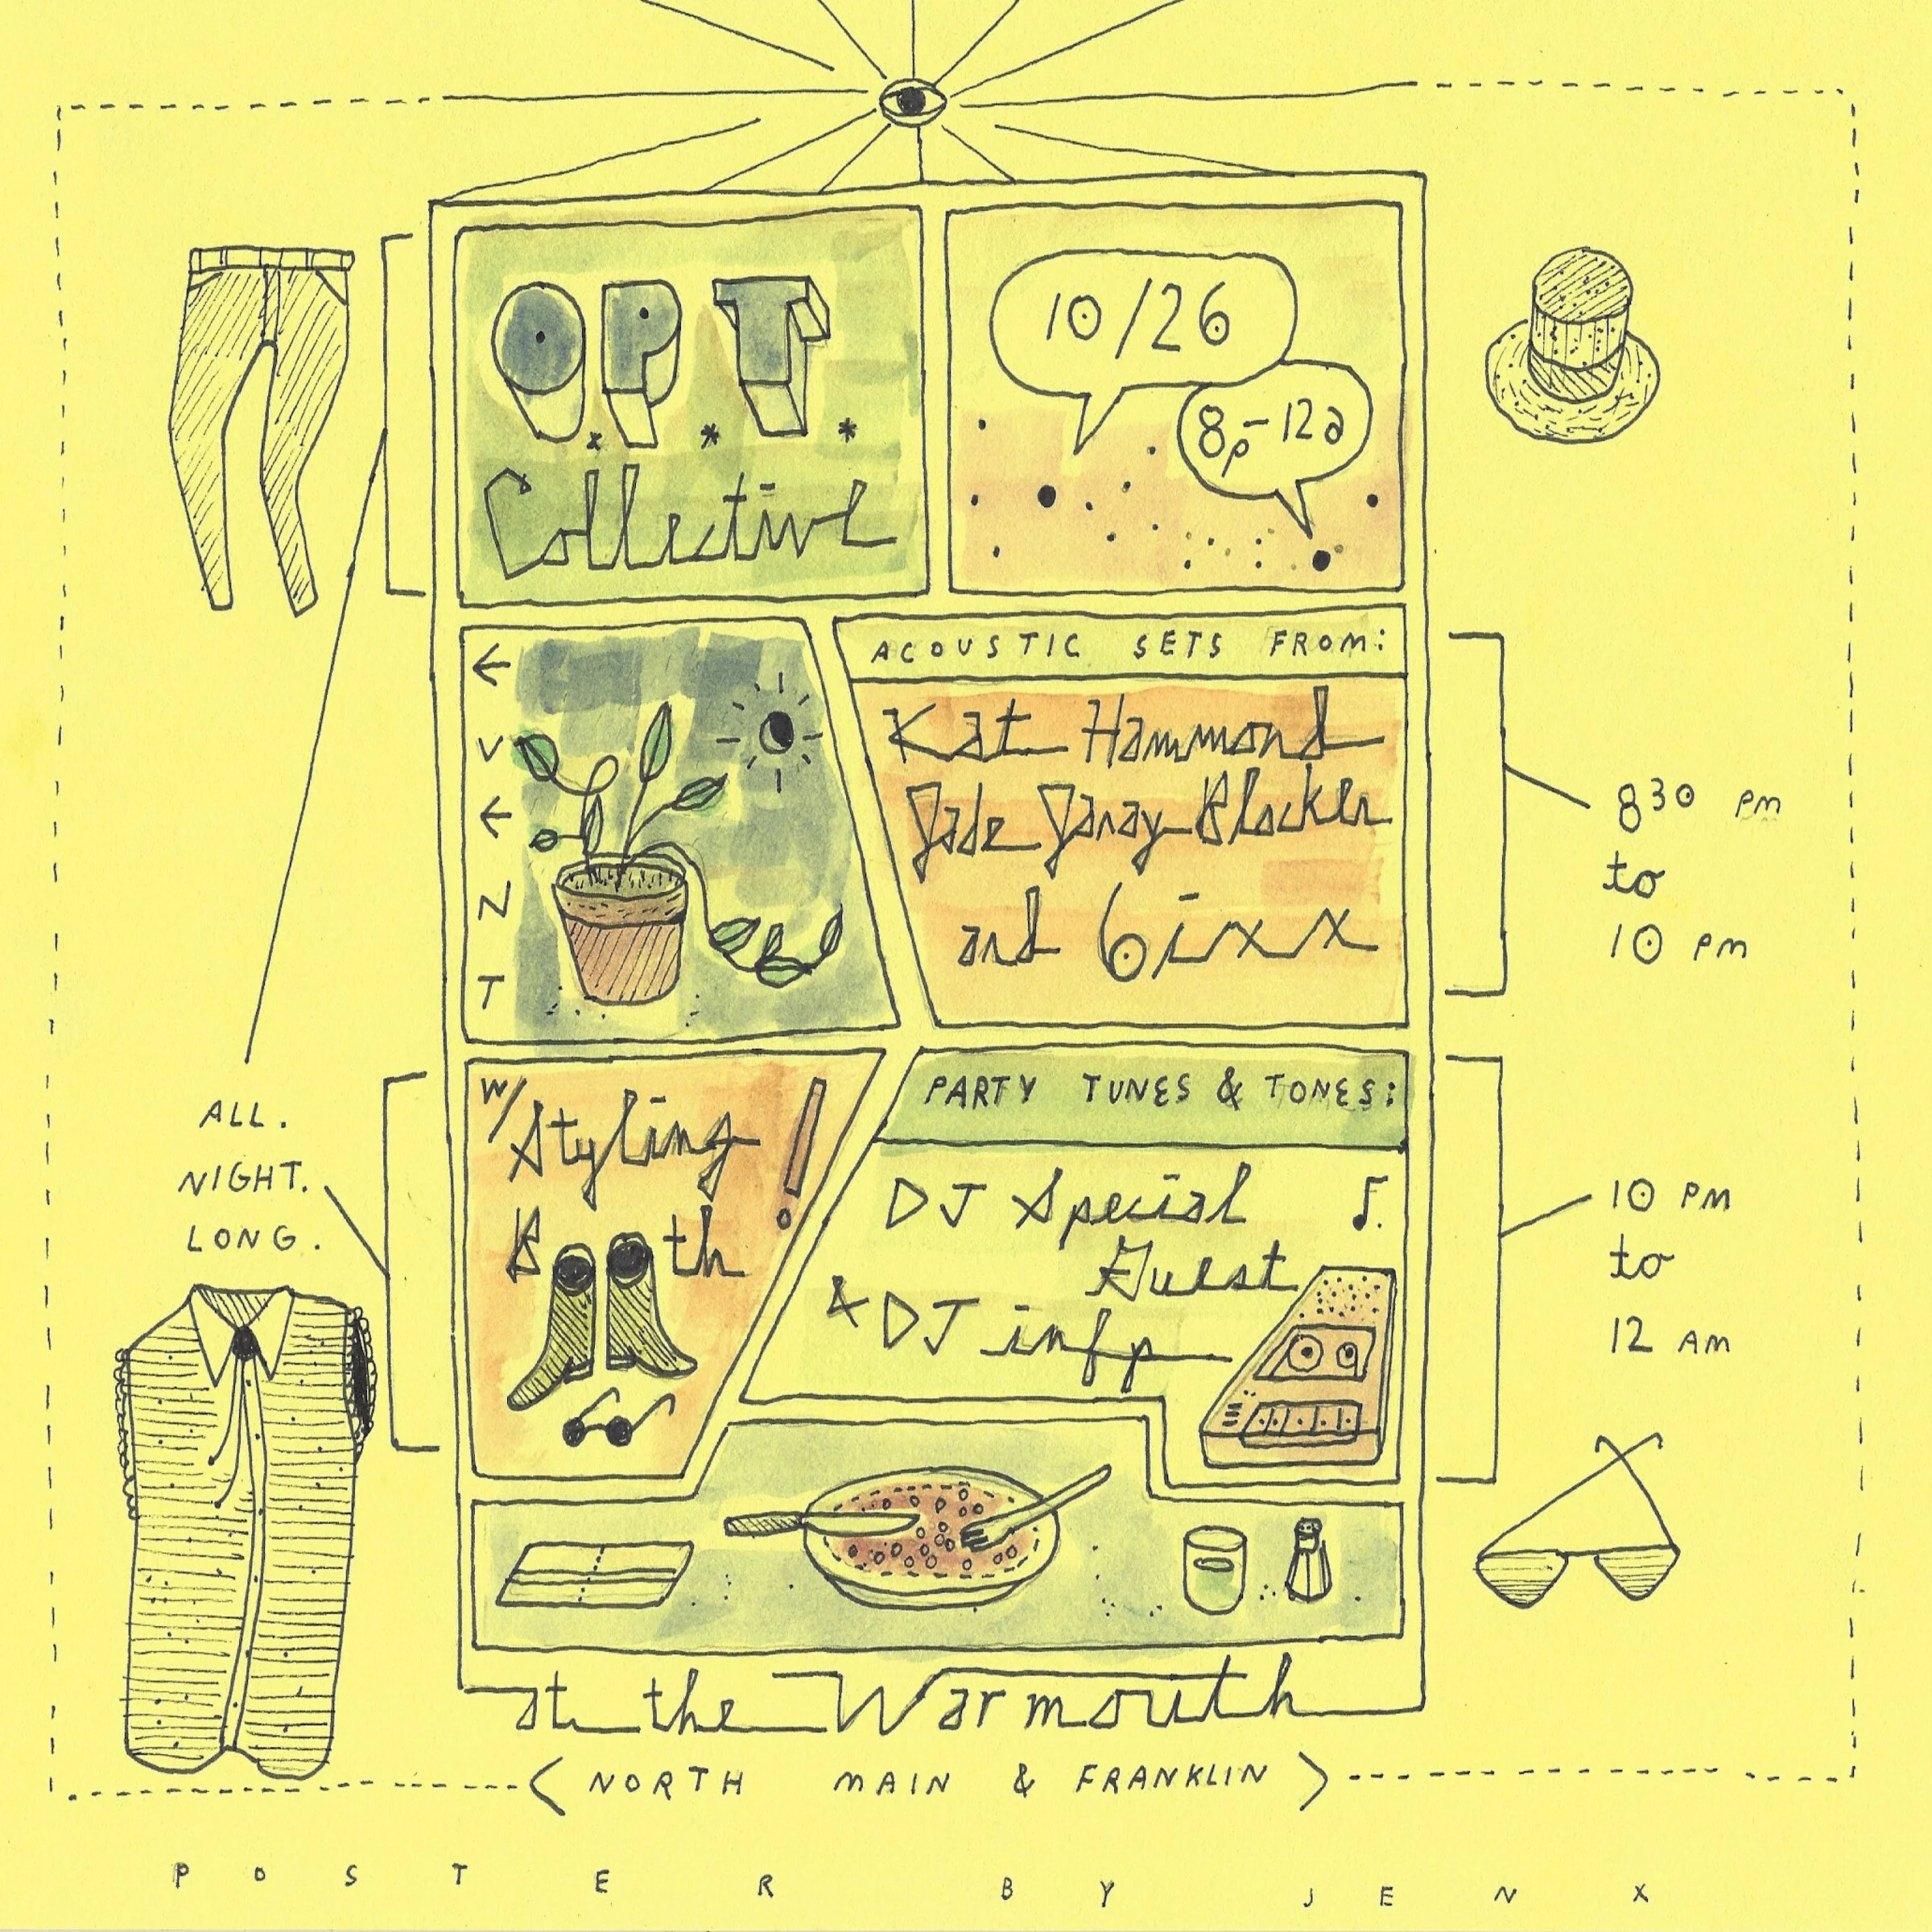 O.P.T.
Collective
10/26
8p-12a
EVENT
ACOUSTIC SETS FROM:
Kat Hammond
Jade Garay-Blocker
and 6ixx
830 pm
to
10 pm
ALL.
NIGHT.
LONG.
w/ Styling
Booth!
PARTY TUNES & TONES:
DJ Special
Guest
& DJ infp
10 PM
to
12 AM
at the Warmouth
< NORTH MAIN & FRANKLIN >
POSTER BY JENX